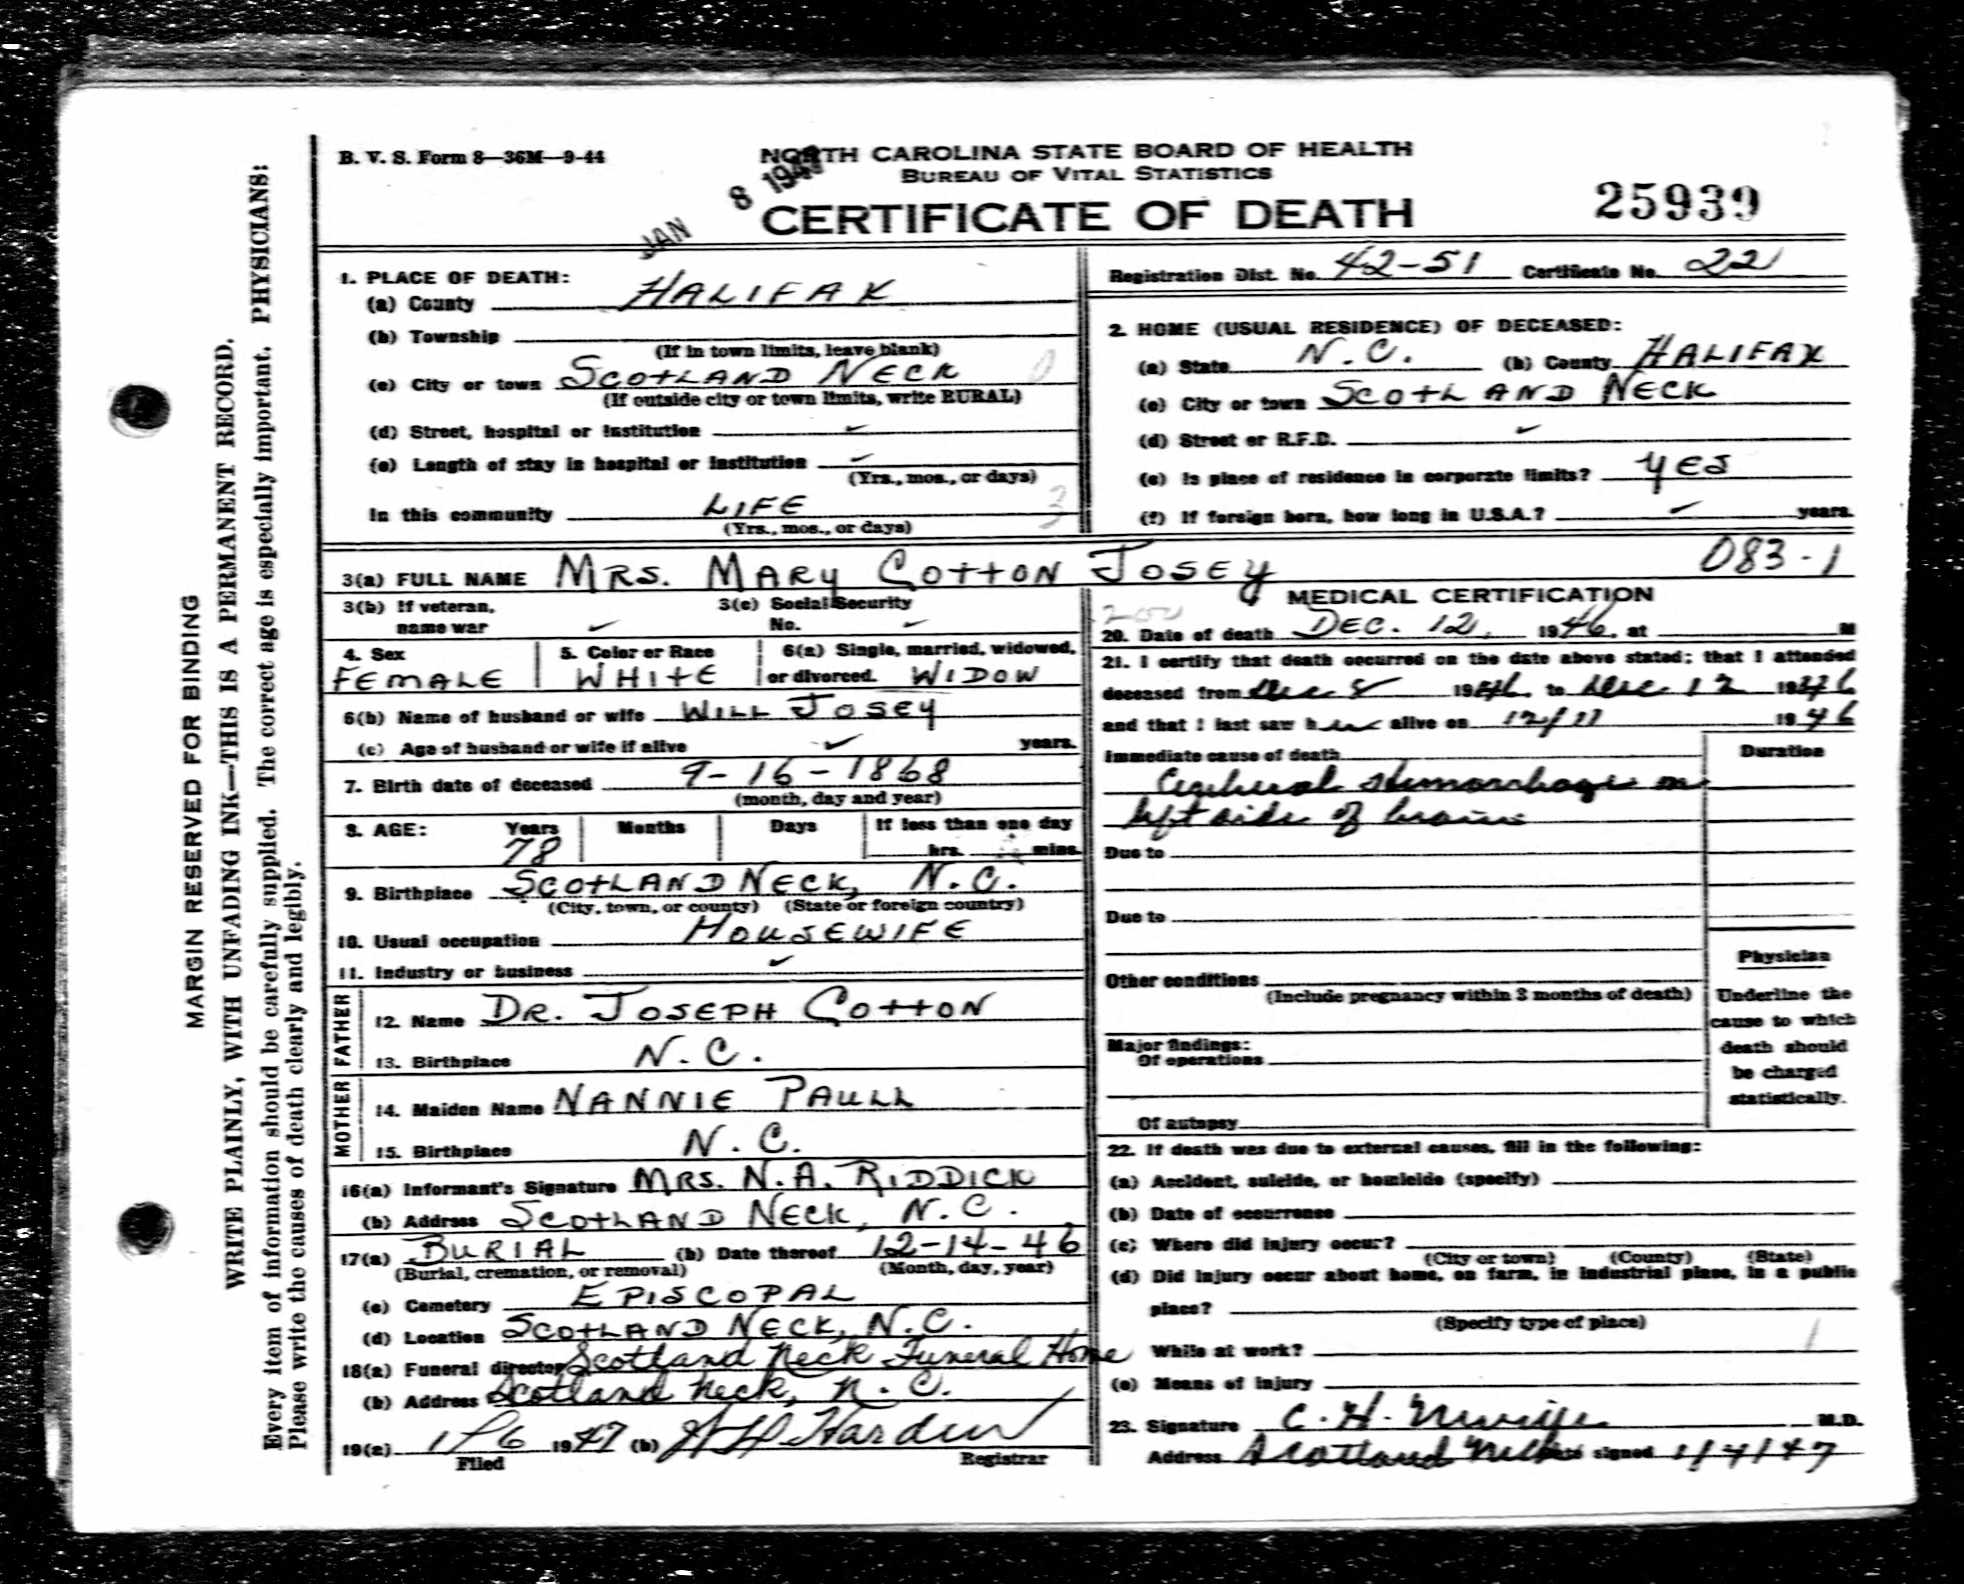 MARGIN RESERVED FOR BINDING
WRITE PLAINLY, WITH UNFADING INK—THIS IS A PERMANENT RECORD.
Every item of information should be carefully supplied. The correct age is especially important. PHYSICIANS:
Please write the causes of death clearly and legibly.
B. V. S. Form 8—36M—9-44
NORTH CAROLINA STATE BOARD OF HEALTH
BUREAU OF VITAL STATISTICS
JAN 8 1947
CERTIFICATE OF DEATH
25939
1. PLACE OF DEATH:
(a) County HALIFAX
(b) Township
(If in town limits, leave blank)
(c) City or town SCOTLAND NECK
(If outside city or town limits, write RURAL)
(d) Street, hospital or institution ✓
(e) Length of stay in hospital or institution ✓
(Yrs., mos., or days)
In this community LIFE
(Yrs., mos., or days)
Registration Dist. No. 42-51 Certificate No. 22
2. HOME (USUAL RESIDENCE) OF DECEASED:
(a) State N.C. (b) County HALIFAX
(c) City or town SCOTLAND NECK
(d) Street or R.F.D. ✓
(e) Is place of residence in corporate limits? YES
(f) If foreign born, how long in U.S.A.? ✓ years.
3(a) FULL NAME MRS. MARY COTTON JOSEY
083-1
3(b) If veteran, name war ✓
3(c) Social Security No. ✓
4. Sex FEMALE
5. Color or Race WHITE
6(a) Single, married, widowed, or divorced. WIDOW
6(b) Name of husband or wife WILL JOSEY
(c) Age of husband or wife if alive ✓ years.
7. Birth date of deceased 9-16-1868
(month, day and year)
8. AGE: Years 78 Months Days If less than one day
hrs. mins.
9. Birthplace SCOTLAND NECK, N.C.
(City, town, or county) (State or foreign country)
10. Usual occupation HOUSEWIFE
11. Industry or business ✓
FATHER
12. Name DR. JOSEPH COTTON
13. Birthplace N.C.
MOTHER
14. Maiden Name NANNIE PAULL
15. Birthplace N.C.
16(a) Informant's Signature MRS. N.A. RIDDICK
(b) Address SCOTLAND NECK, N.C.
17(a) BURIAL (b) Date thereof 12-14-46
(Burial, cremation, or removal) (Month, day, year)
(c) Cemetery EPISCOPAL
(d) Location SCOTLAND NECK, N.C.
18(a) Funeral director Scotland Neck Funeral Home
(b) Address Scotland Neck, N.C.
19(a) 1947 (b) Harden
Filed Registrar
MEDICAL CERTIFICATION
20. Date of death DEC. 12, 1946, at M
21. I certify that death occurred on the date above stated; that I attended
deceased from Dec 8 1946 to Dec 12 1946
and that I last saw her alive on 12/11 1946
Immediate cause of death
Duration
Cerebral Hemorrhage on
left side of brain
Due to
Due to
Other conditions
(Include pregnancy within 3 months of death)
Major findings:
Of operations
Of autopsy
Physician
Underline the
cause to which
death should
be charged
statistically.
22. If death was due to external causes, fill in the following:
(a) Accident, suicide, or homicide (specify)
(b) Date of occurrence
(c) Where did injury occur?
(City or town) (County) (State)
(d) Did injury occur about home, on farm, in industrial place, in a public
place?
(Specify type of place)
While at work?
(e) Means of injury
23. Signature C. H. M.D.
Address Scotland Neck Date signed 1/4/47